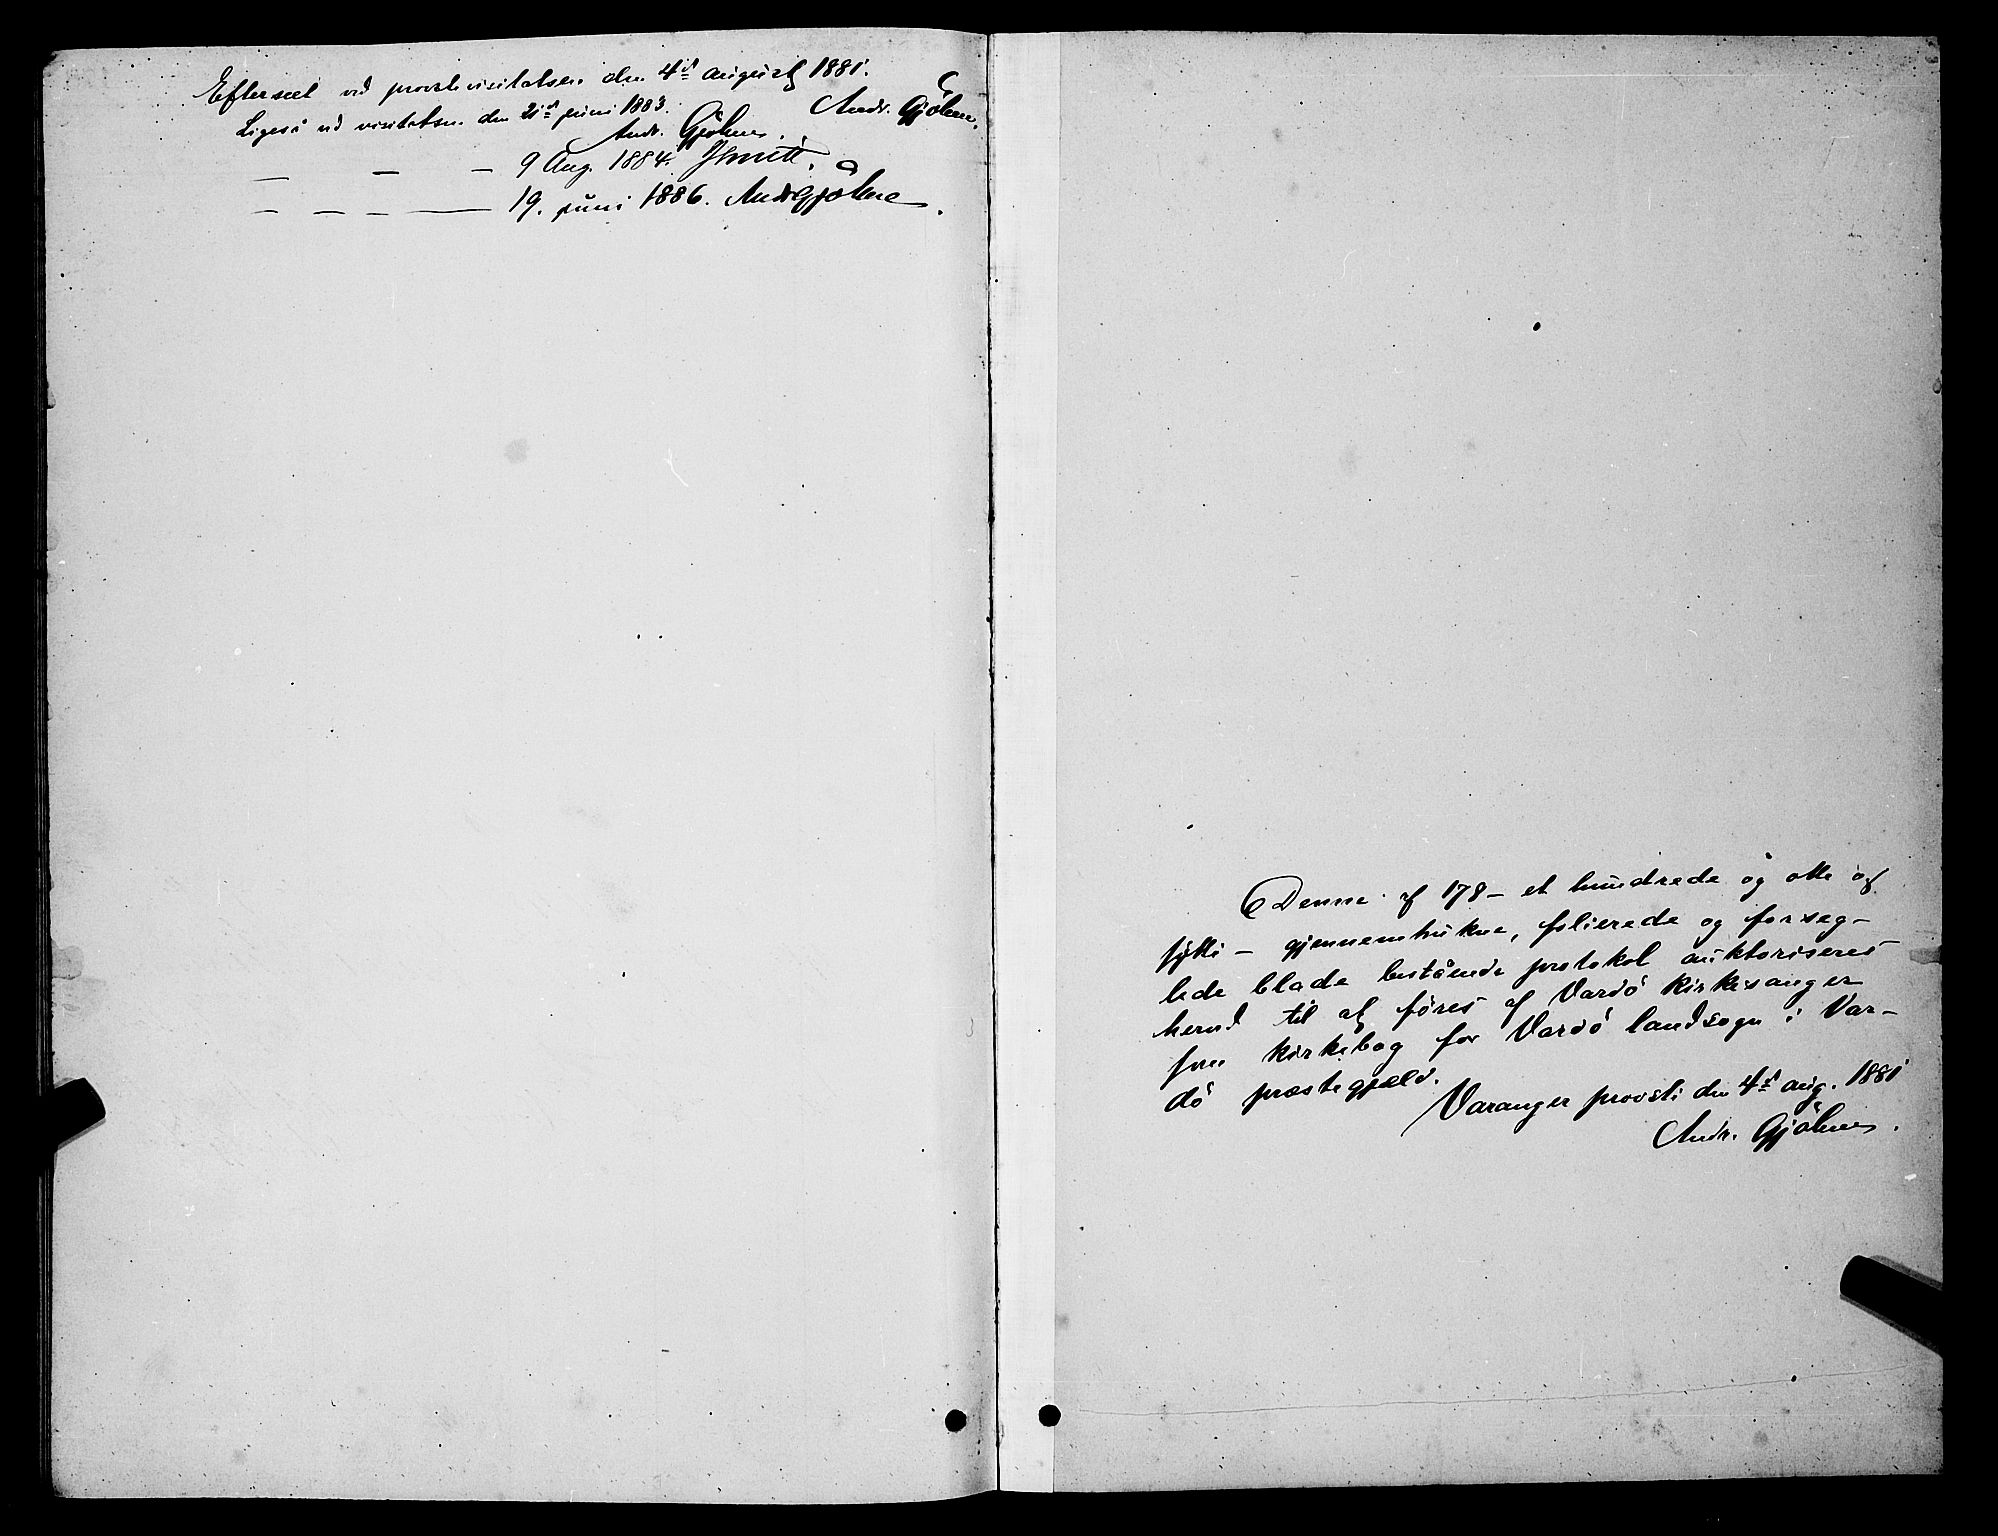 Efterseet ved provstevisitatsen den 4de august 1881.
Andr. Gjølme.
Ligeså ved visitatsen den 21de juni 1883.
Andr. Gjølme.
— — — 9 Aug. 1884. JSmitt.
— — — — 19. juni 1886. AndrGjølme.
Denne af 178 – et hundrede og otte og
sytti – gjennemtrukne, folierede og forseg-
lede blade bestående protokol auktoriseres
herved til at føres af Vardö kirkesanger
som kirkebog for Vardö landsogn i Var-
dö præstegjæld.
Varanger provsti den 4de aug. 1881
Andr. Gjølme.